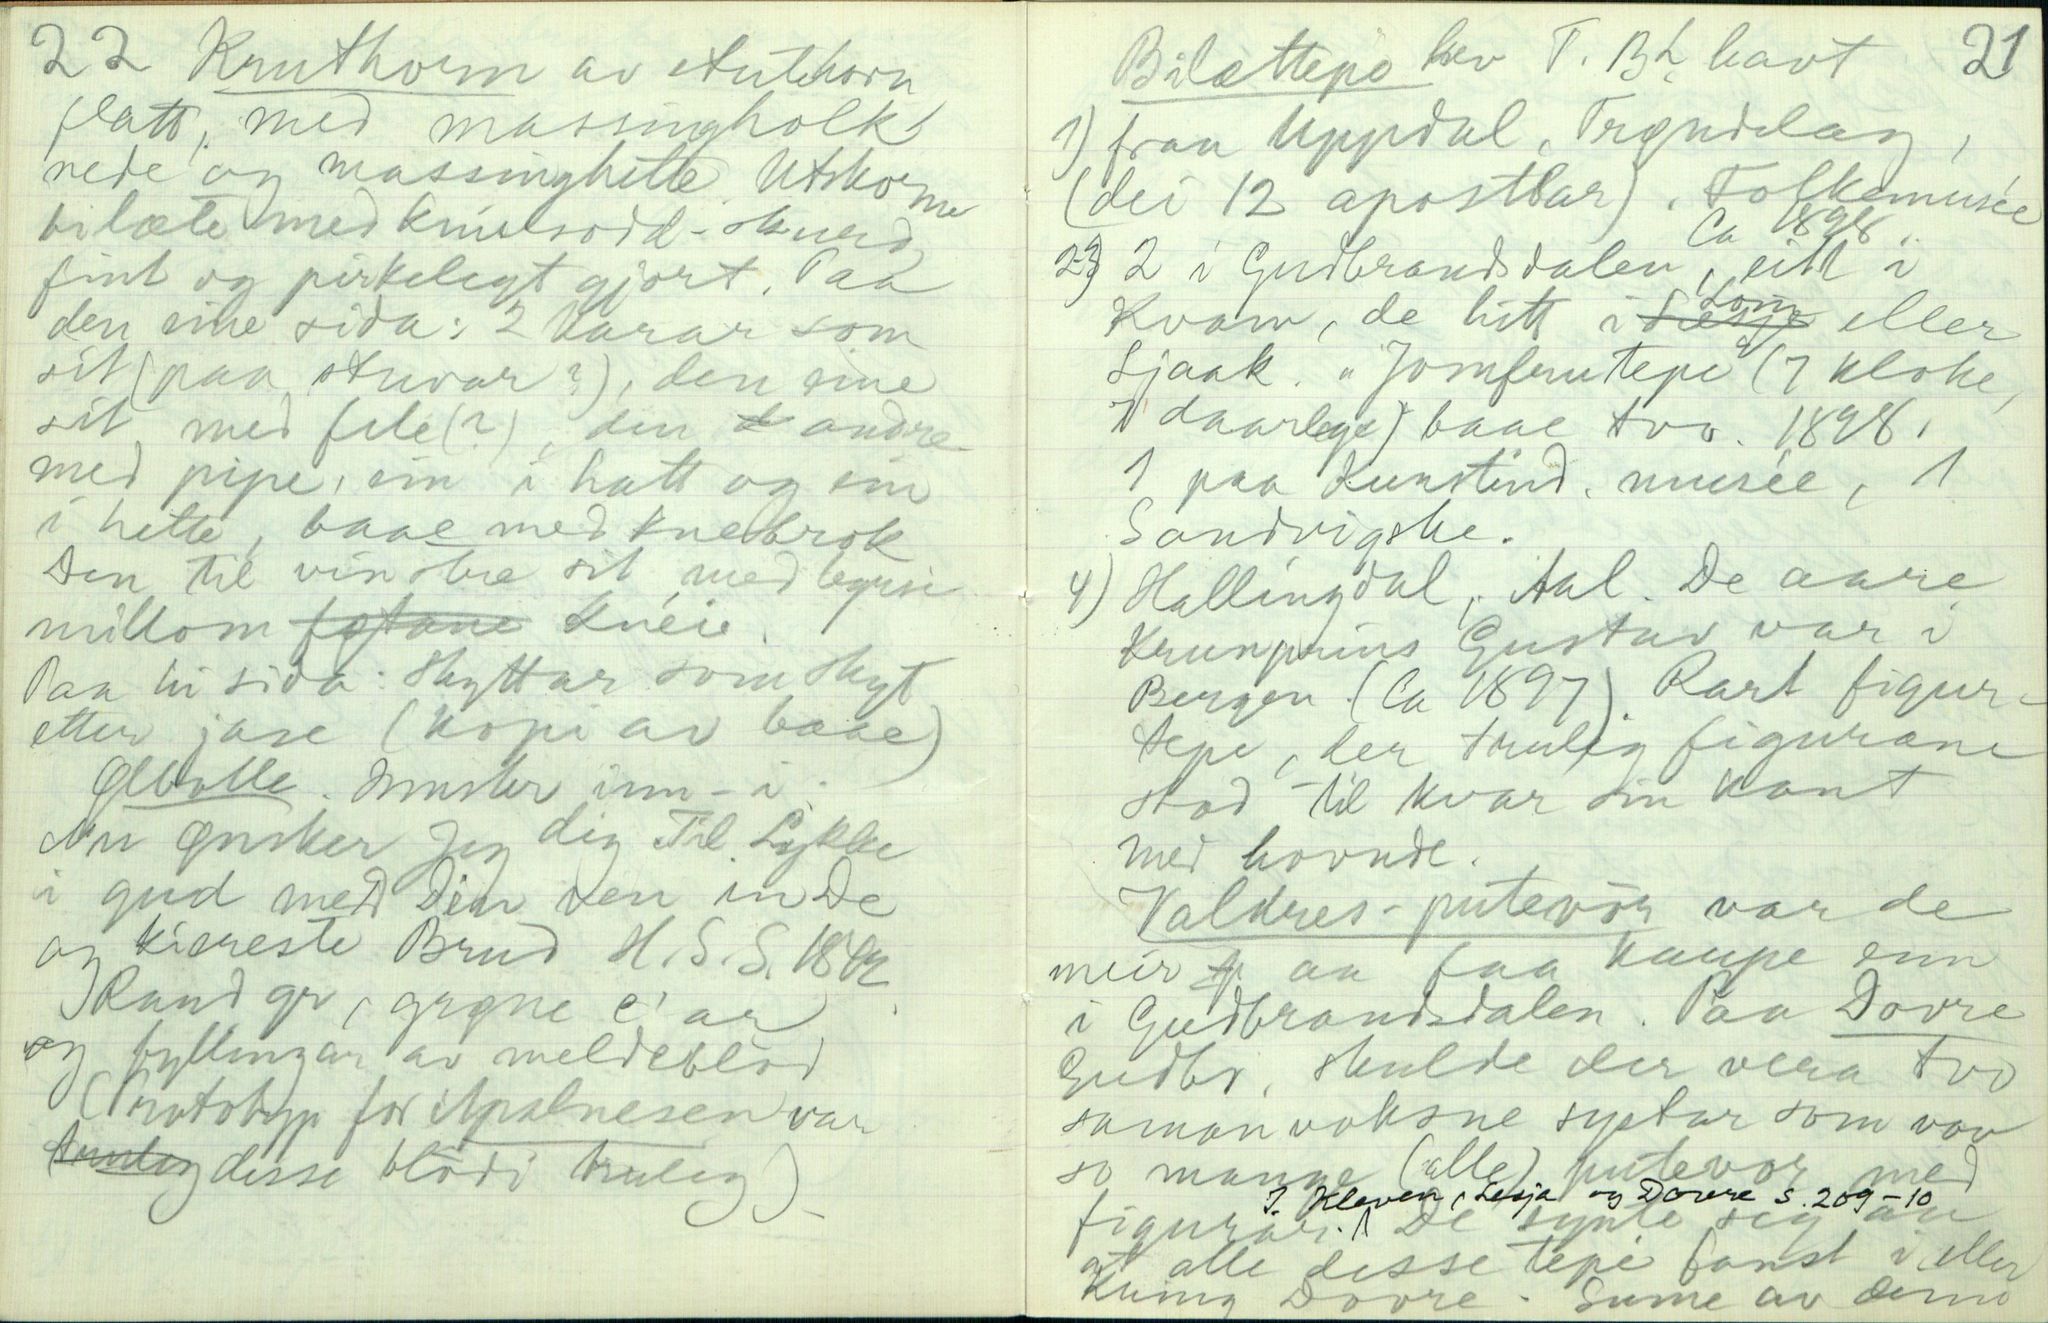 22 Kruthorn av stuthorn
flatt, med massingholk
nede og massinghette. Utskorne
bilæte med knivsodd-skurd
fint og pirkelegt gjort. Paa
den eine sida: 2 karar som
sit (paa stuvar?), den eine
sit med fele(?), den andre
med pipe, ein i hatt og ein
i hette, baae med knebrok
Den til vinstre sit med
millom føtane kneie.
Paa hi sida: Skyttar som skyt
etter jase (kopi av baae)
Ølbolle. Smiler inn-i.
Nu Ønsker Jeg dig Til Lykke
i gud med Din ven inDe
og kiæreste Brud H.S.S. 18
Rand gr, grøne c'ar
og fyllingar av meldeblod
(Prototyp for Apalnesen var
truleg disse blodi truleg)
21
Bilættepe hev T. Bh. havt
1) fraa Uppdal, Trøndelag,
(dei 12 apostlar). Folkemusée
Ca 1898.
2-3) 2 i Gudbrandsdalen, eitt i
Kvam, de hitt i Lesje Lom eller
Sjaak. "Jomfrutepe" (7 kloke,
7 daarlege) baae tvo. 1898.
1 paa Kunstind. musée, 1
Sandvigske.
4) Hallingdal, Aal. De aare
Krunprins Gustav var i
Bergen (Ca 1897). Rart figur-
tepe, der truleg figurane
stod til kvar sin kant
med hovude.
Valdres-putevør var de
meir aa faa kaupe enn
i Gudbrandsdalen. Paa Dovre
Gudbr. skulde der vera tvo
samanvoksne systar som vov
so mange (alle) putevor med
I. Kleven, Lesja og Dovre s. 209-10
figurar. De synte seg au
at alle desse tepe fanst i eller
kring Dovre. Sume av deim